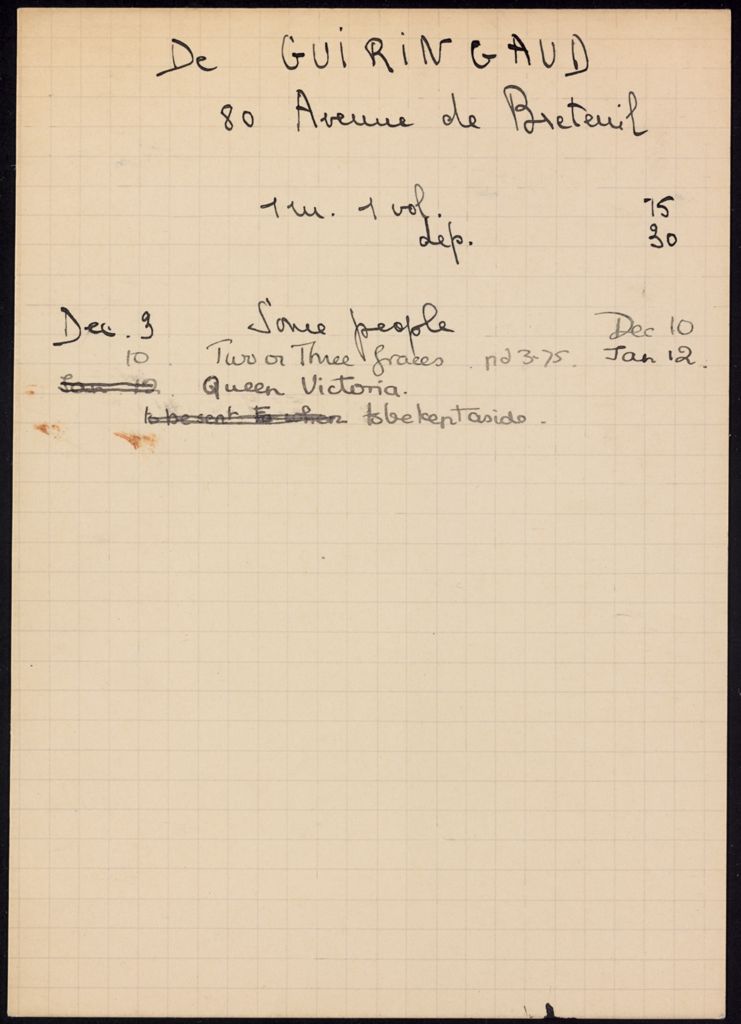 De GUIRINGAUD
80 Avenue de Breteuil
1 m. 1 vol. 75
dep. 30
Dec. 3 Some people Dec 10
10. Two or Three Graces. pd 3-75. Jan 12.
Jan 12. Queen Victoria.
to be sent to when to be kept aside.